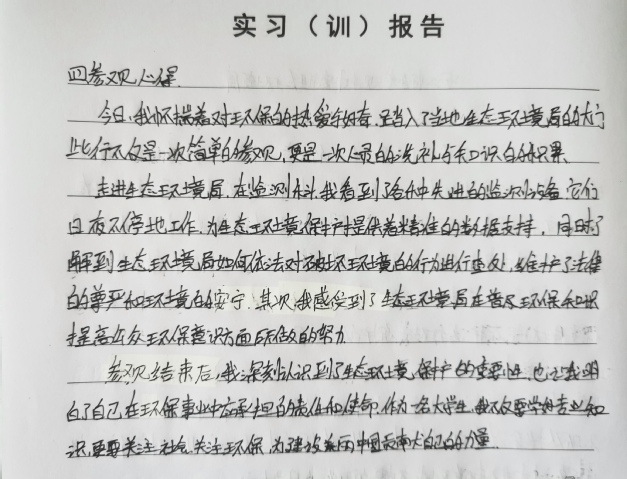 实习（训）报告
四参观心得
今日，我怀揣着对环保的热爱与好奇，踏入了当地生态环境局的大门
此行不仅是一次简单的参观，更是一次心灵的洗礼与知识的积累
走进生态环境局，在监测站我看到了各种先进的监测设备，它们
日夜不停地工作，为生态环境保护提供着精准的数据支持，同时了
解到生态环境局如何依法对破坏环境的行为进行查处，维护了法律
的尊严和环境的安宁，其次，我感受到了生态环境局在普及环保知识
提高公众环保意识方面所做的努力
参观结束后，我深刻认识到了生态环境保护的重要性，也让我明
白了自己在环保事业中应承担的责任和使命，作为一名大学生，我不仅要学好专业知
识，更要关注社会，关注环保，为建设美丽中国贡献自己的力量